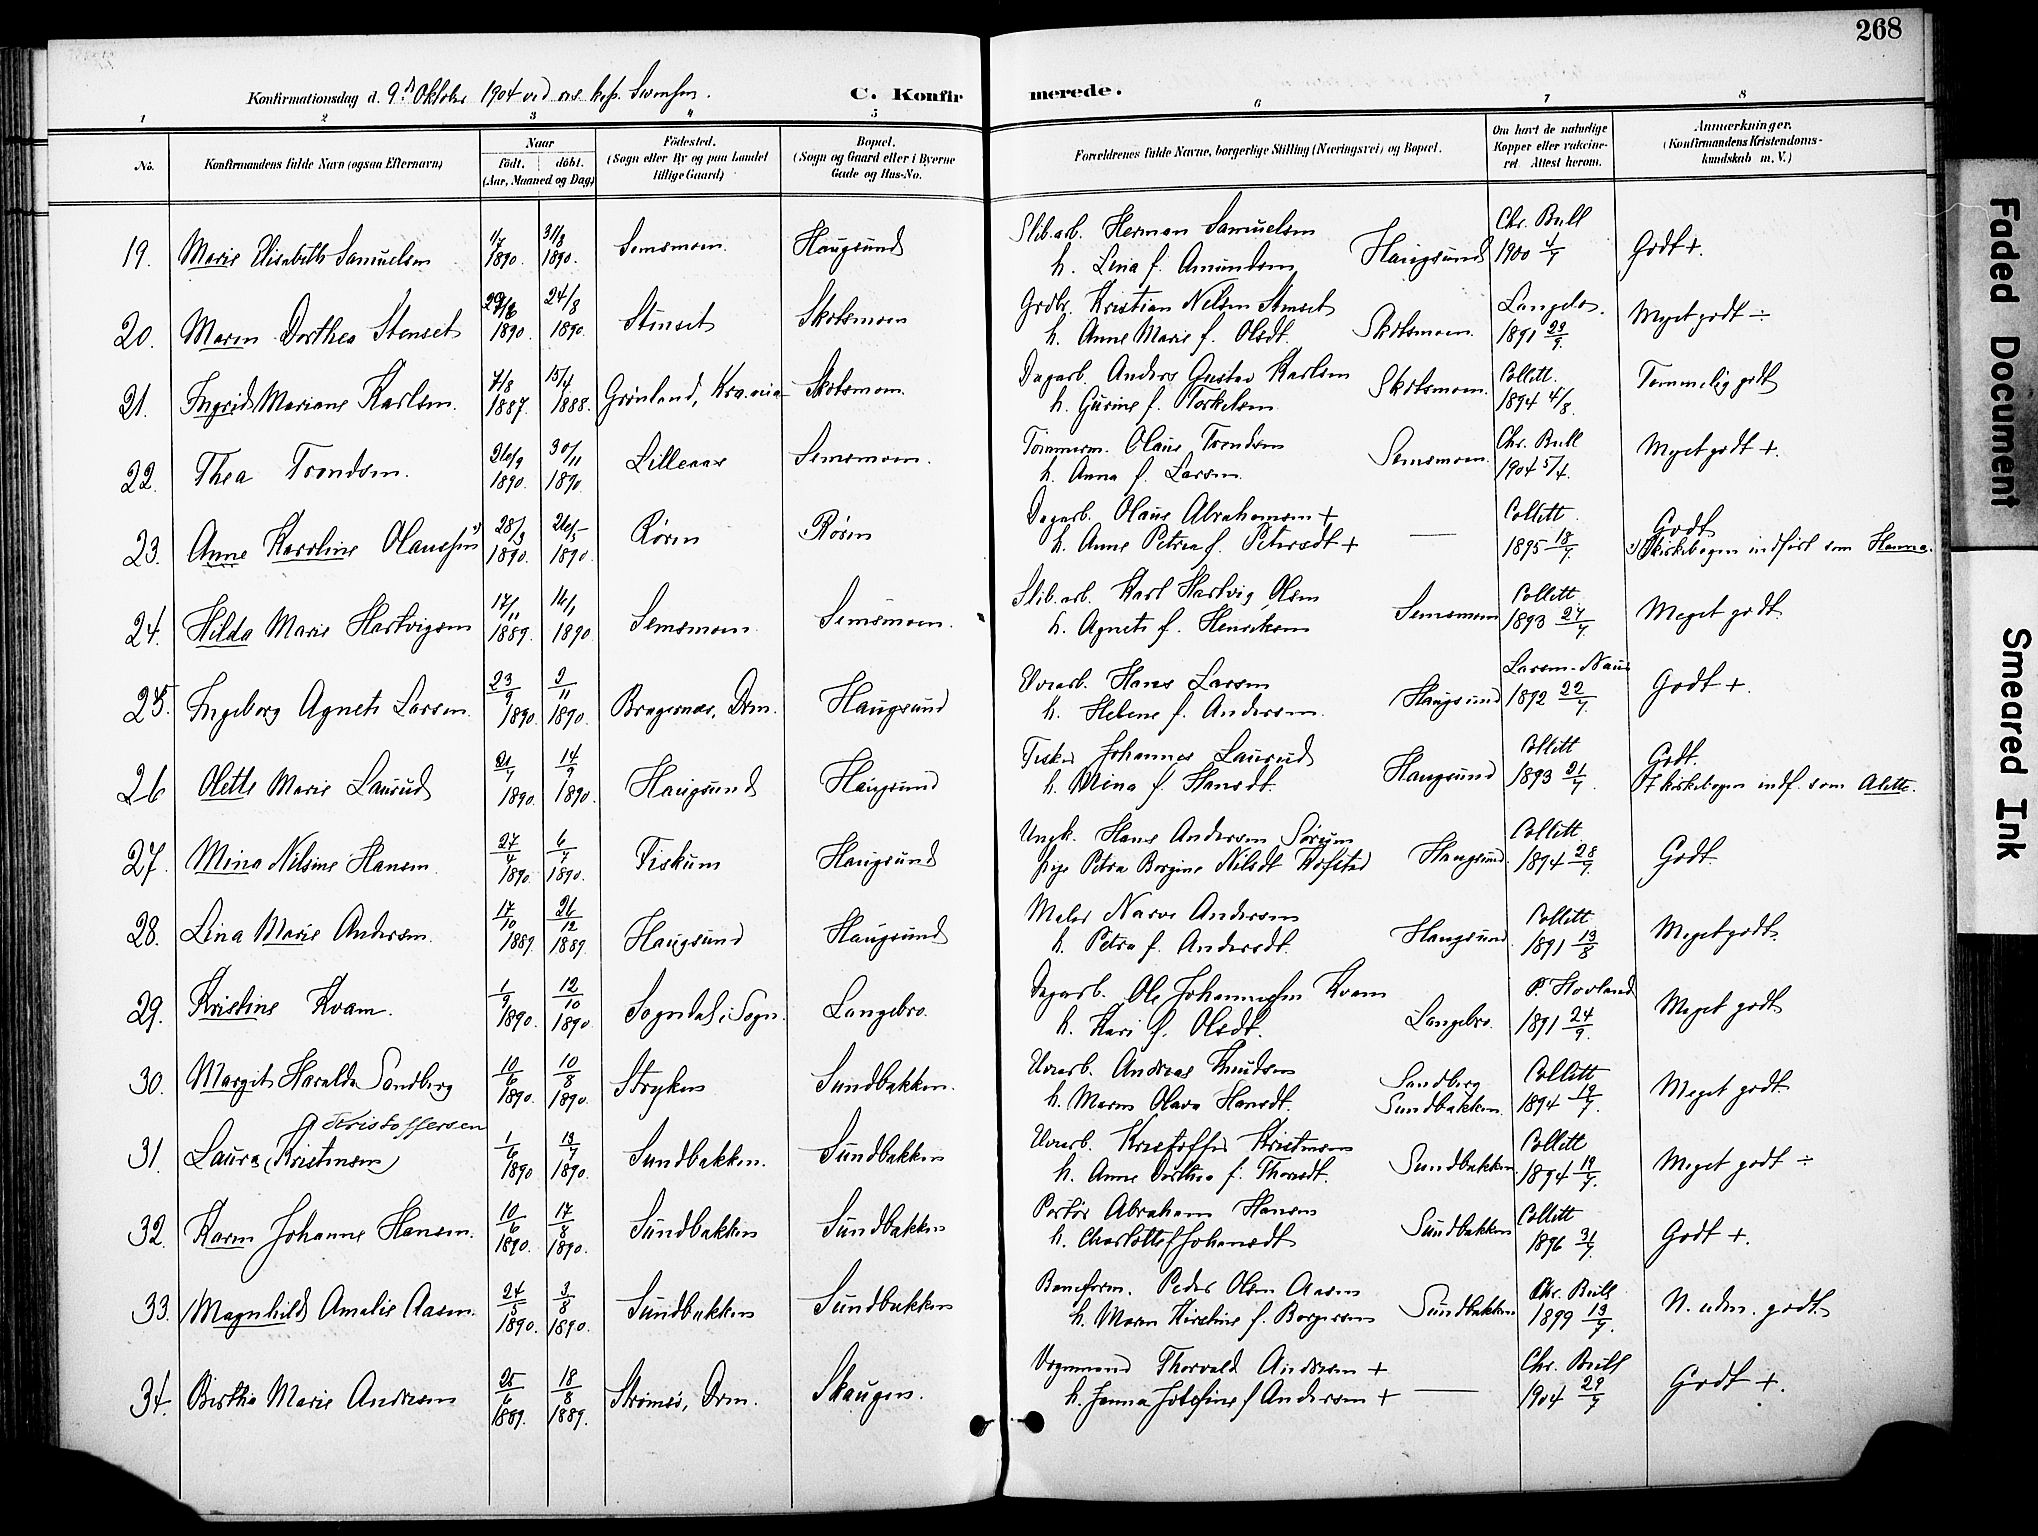 268
Konfirmationsdag d. 9de Oktober 1904 ved res. kap. Svensen.
C. Konfirmerede.
1 2 3 4 5 6 7 8
No.
Konfirmandens fulde Navn (ogsaa Efternavn)
Naar
født. döbt.
(Aar, Maaned og Dag)
Födested.
(Sogn eller By og paa Landet
tillige Gaard)
Bopæl.
(Sogn og Gaard eller i Byerne
Gade og Hus-No.
Forældrenes fulde Navne, borgerlige Stilling (Næringsvei) og Bopæl.
Om havt de naturlige
Kopper eller vakcine-
ret. Attest herom.
Anmærkninger.
(Konfirmandens Kristendoms-
kundskab m. V.)
19. Marie Elisabeth Samuelsen 1/7 1890. 31/8 1890. Semsmoen. Haugsund Slib.arb. Herman Samuelsen
h. Lina f. Amundsen Haugsund Chr. Bull 1900 4/7 Godt +.
20. Maren Dorthea Stenset 29/6 1890. 24/8 1890. Stenset Skotsmoen Grdbr. Kristian Nelsen Stenset
h. Anne Marie f. Olsdt. Skotsmoen. Langelo. 1891 29/9. Myet godt ÷
21. Ingrid Mariane Karlsen. 7/8 1887. 15/4 1888. Grønland, Kra.nia Skotsmoen. Dagarb. Anders Gustav Karlsen
h. Gurine f. Torkelsen Skotsmoen. Collett. 1894 4/8. Temmelig godt
22. Thea Trondsen. 26/9 1890. 30/11 1890. Lilleaas Semsmoen. Tømmerm. Olaus Trondsen
h. Anna f. Larsen. Semsmoen. Chr. Bull 1904 5/4. Myet godt +.
23. Anne Karoline Olaussen 1) 28/3 1890. 26/5 1890. Røren Røren Dagarb. Olaus Abrahamsen +
h. Anne Petrea f. Petersdt + — Collett. 1895 18/7. Godt
1) I Kirkebogen indført som Hanna.
24. Hilda Marie Hartvigsen 17/11 1889. 16/1 1890 Semsmoen Semsmoen. Slib.arb. Karl Hartvig Olsen
h. Agnete f. Henriksen Semsmoen Collett 1893 27/7. Meget godt
25. Ingeborg Agnete Larsen. 23/9 1890. 9/11 1890. Bragernæs, Drm. Haugsund h. Hans Larsen
h. Helene f. Andersen. Haugsund Larsen-Naur 1892 22/7. Godt +.
26 Olette Marie Laurud 21/7 1890. 14/9 1890. Haugsund Haugsund Fisker Johannes Laurud
h. Mina f. Hansdt. Haugsund Collett 1893 21/7. Godt.
I kirkebogen indf. som Alette.
27. Mina Nilsine Hansen 27/4 1890. 6/7 1890. Fiskum Haugsund Ungk. Hans Andersen Sørum
pige Petra Borgine Nilsdt Hofstad Haugsund. Collett 1894 28/7. Godt.
28. Lina Marie Andersen. 17/10 1889. 26/12 1889. Haugsund Haugsund Maler Narve Andersen
h. Petra f. Andersdt. Haugsund. Collett 1891 13/8 Meget godt.
29. Kristine Kvam. 1/9 1890. 12/10 1890. Sogndal i Sogn. Langebro. Dagarb. Ole Johannessen Kvam
h. Kari f. Olsdt. Langebro. P. Hovland 1891 24/9. Meget godt
30. Margit Haralda Sandberg 10/6 1890. 10/8 1890. Stryken Sundbakken. Andreas Knudsen
h. Maren Olava Hansdt. Sandberg
Sundbakken. Collett 1894 19/7. Meget godt
Kristoffersen
31. Laura (Kristensen) 1/6 1890 13/7 1890. Sundbakken. Sundbakken Kristoffer Kristensen
h. Anne Dorthea f. Thorsdt. Sundbakken. Collett 1894 19/7. Meget godt ÷
32. Karen Johanne Hansen. 10/6 1890. 17/8 1890. Sundbakken Sundbakken Abraham Hansen
h. Charlotte f Johansdt Sundbakken Collett 1896 31/7. Godt +.
33. Magnhild Amalie Aasen. 24/5 1890. 3/8 1890. Sundbakken Sundbakken Baneform. Peder Olsen Aasen
h. Maren Kirstine f. Borgersen Sundbakken Chr. Bull 1899 13/7. N. udm. godt.
34. Berthe Marie Andersen 25/6 1889. 18/8 1889. Strømsø, Drm. Skaugen. Vognmand Thorvald Andersen +
h. Hanna Josefine f Andersen + — Chr. Bull 1904 29/7 Godt +.
Faded Document
Smeared Ink